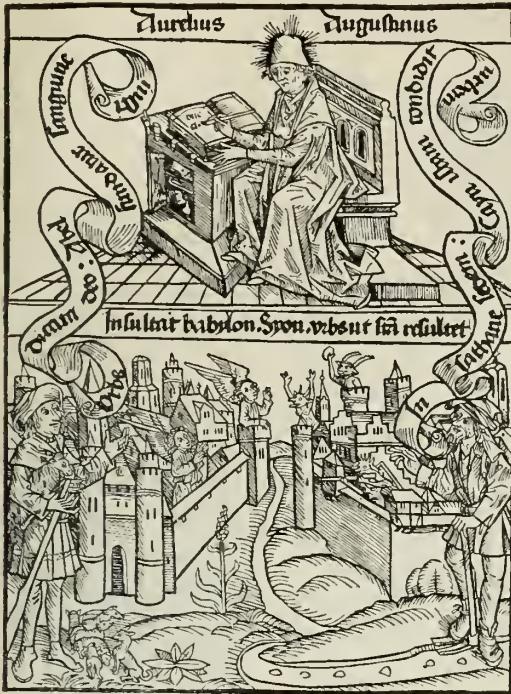 Aurelius Augustinus
Vrbs dicata deo : Abel fundatur sanguine iusti
In sathane sedem : Cayn istam condidit urbem
Insultat babylon. Syon. vrbs ut sca resultet